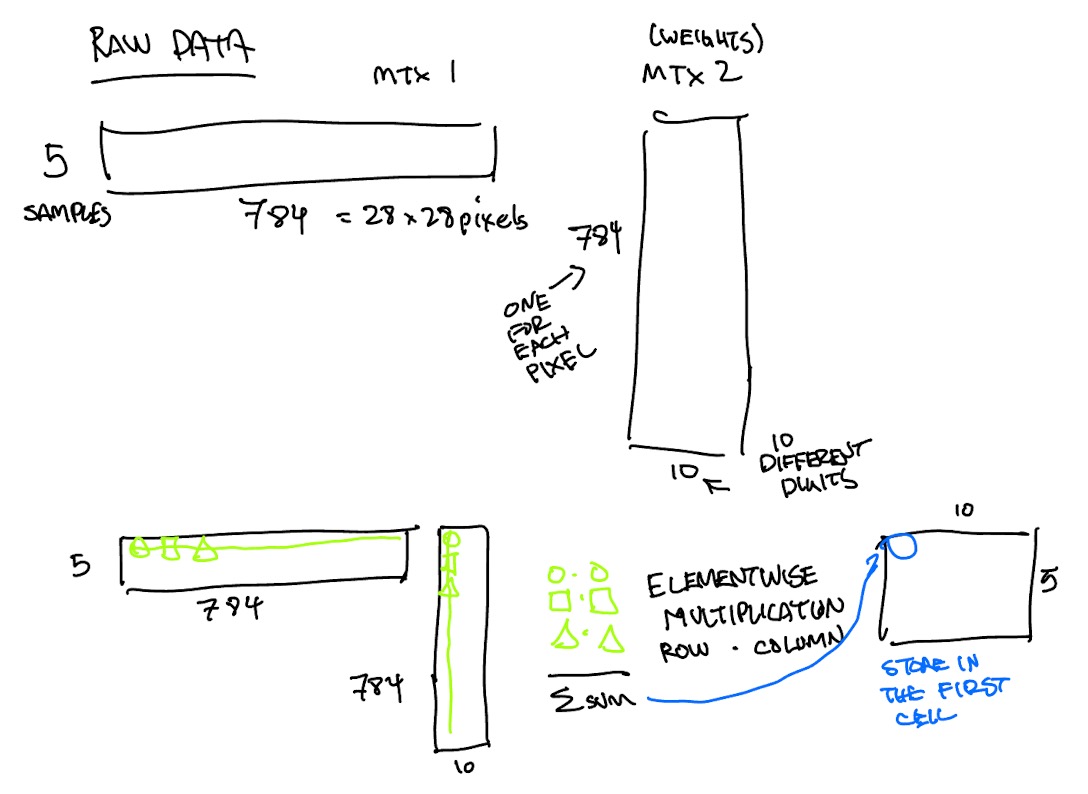 RAW DATA
MTX 1
5
SAMPLES
784 = 28 x 28 pixels
(WEIGHTS)
MTX 2
784
ONE
FOR
EACH
PIXEL
10
10
DIFFERENT
DIGITS
5
784
784
10
ELEMENTWISE
MULTIPLICATION
ROW · COLUMN
Σ SUM
10
5
STORE IN
THE FIRST
CELL